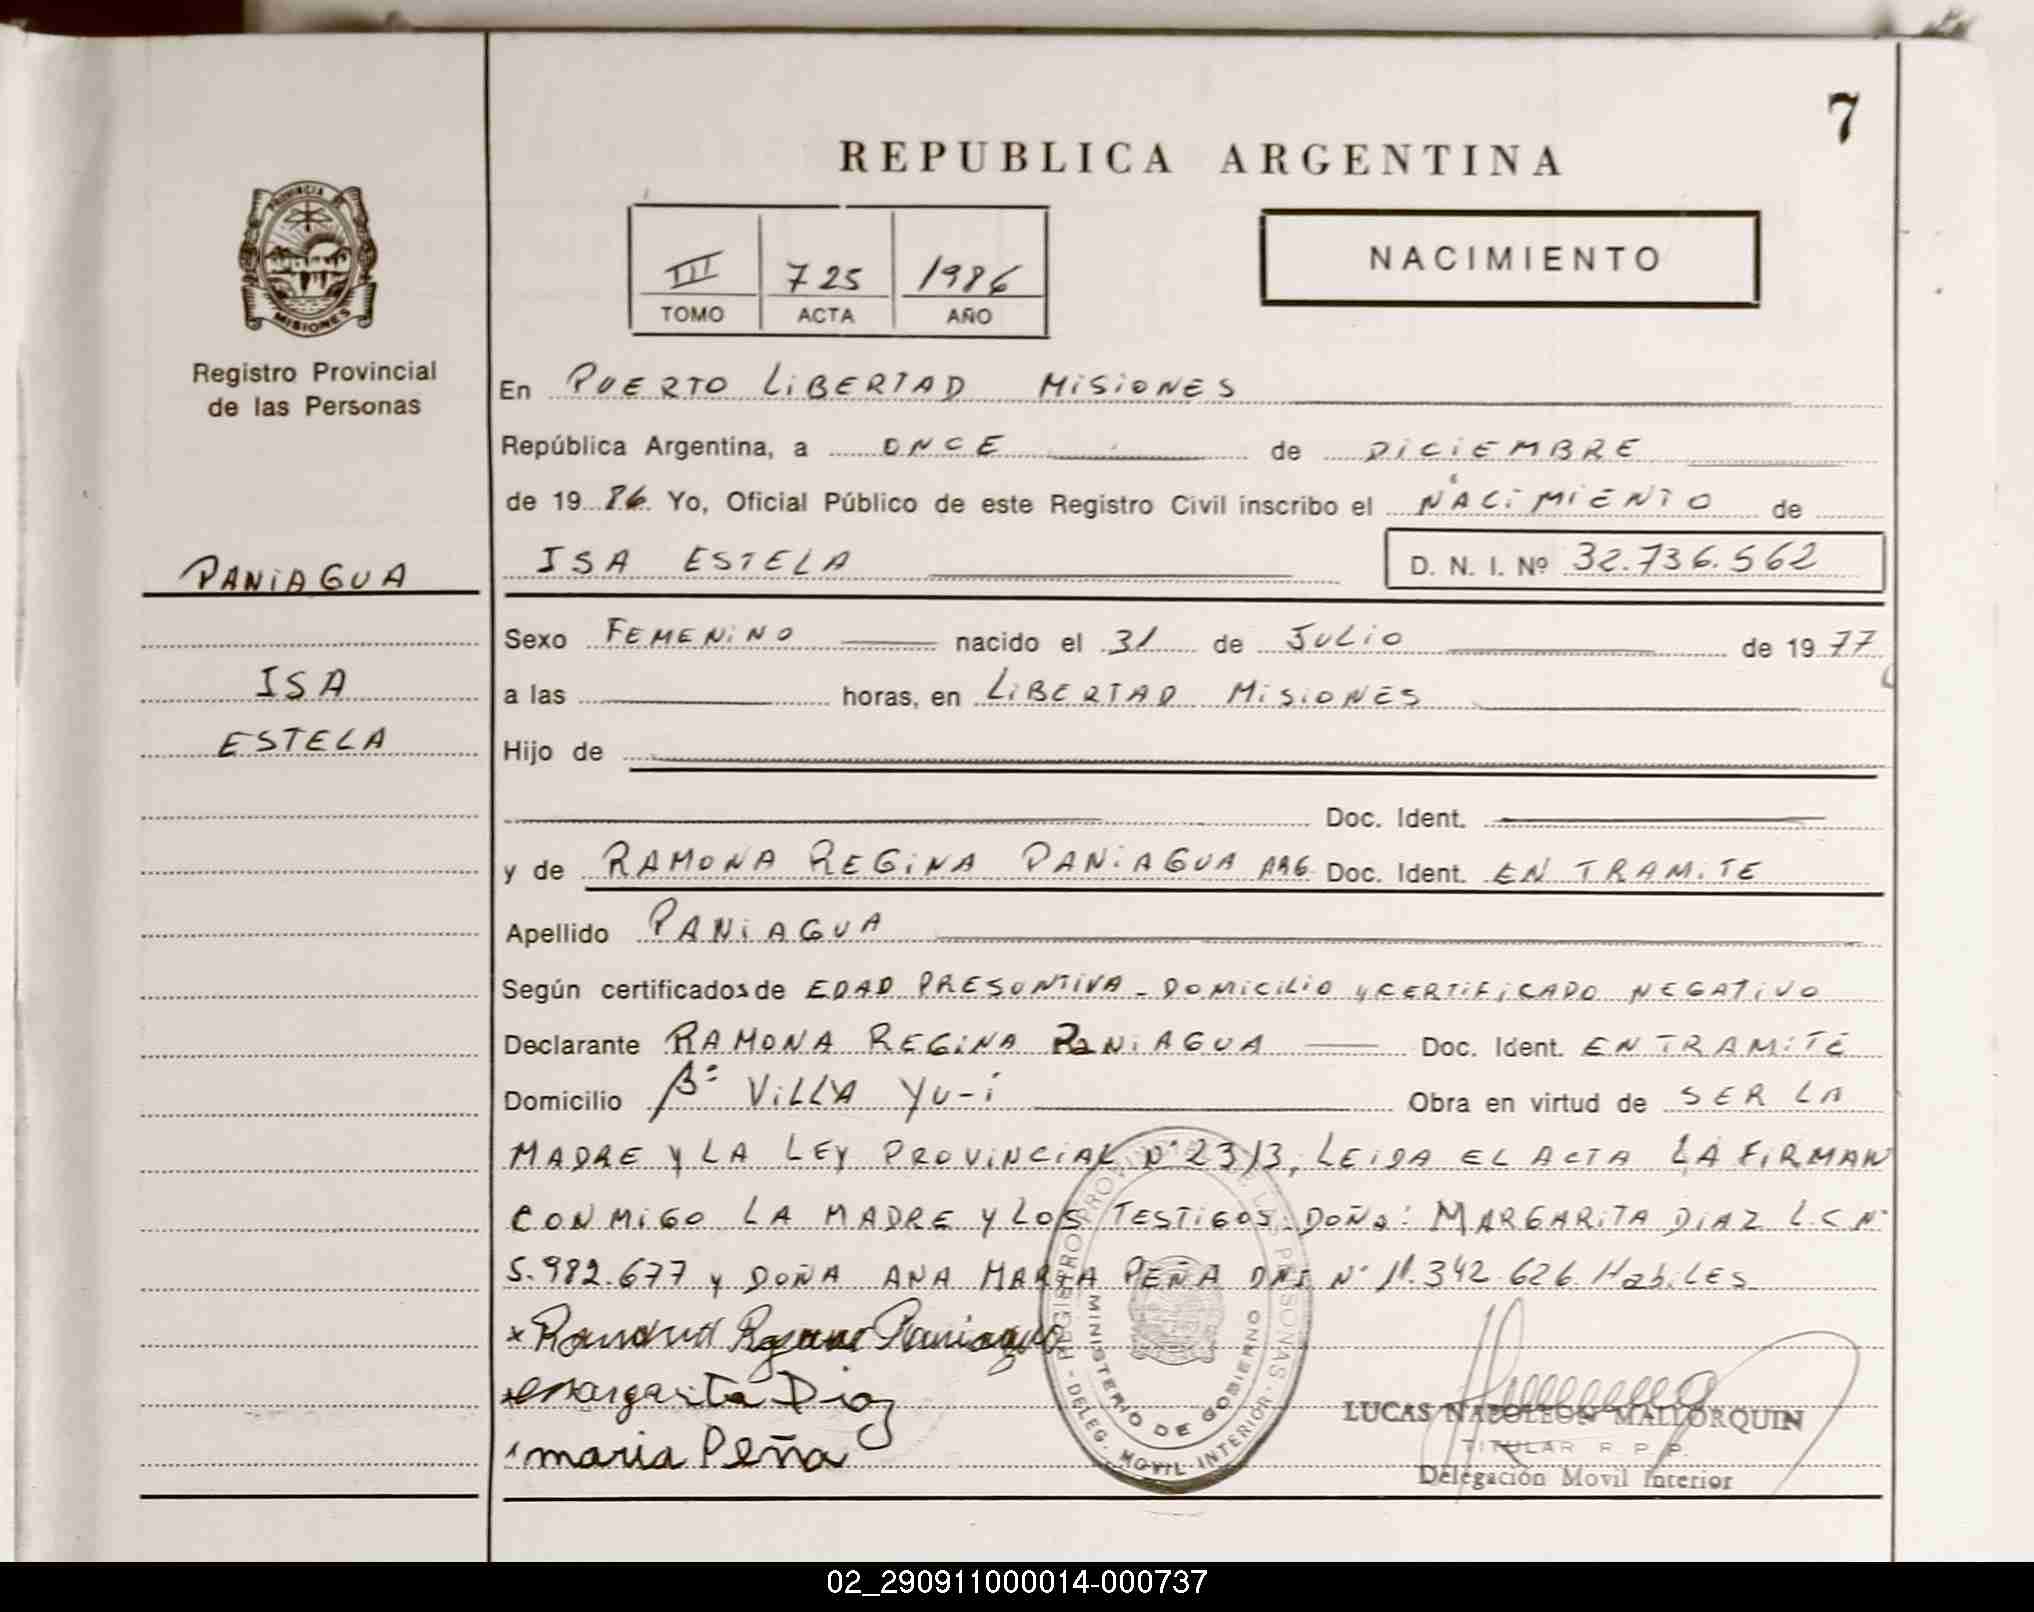 7
REPUBLICA ARGENTINA
PROVINCIA DE
MISIONES
III 725 1986
TOMO ACTA AÑO
NACIMIENTO
Registro Provincial
de las Personas
En PUERTO LIBERTAD MISIONES
República Argentina, a ONCE de DICIEMBRE
de 19 86. Yo, Oficial Público de este Registro Civil inscribo el NACIMIENTO de
PANIAGUA
ISA ESTELA D. N. I. Nº 32.736.562
Sexo FEMENINO nacido el 31 de JULIO de 19 77
ISA
a las horas, en LIBERTAD MISIONES
ESTELA
Hijo de
Doc. Ident.
y de RAMONA REGINA PANIAGUA ARG. Doc. Ident. EN TRAMITE
Apellido PANIAGUA
Según certificados de EDAD PRESUNTIVA - DOMICILIO y CERTIFICADO NEGATIVO
Declarante RAMONA REGINA PANIAGUA Doc. Ident. EN TRAMITE
Domicilio Bº VILLA YU-I Obra en virtud de SER LA
MADRE Y LA LEY PROVINCIAL Nº 2313, LEIDA EL ACTA LA FIRMAN
CONMIGO LA MADRE Y LOS TESTIGOS: DOÑA: MARGARITA DIAZ L.C Nº
5.982.677 y DOÑA ANA MARIA PEÑA DNI Nº 11.342.626. HabiLES
x Ramona Regina Paniagua
x Margarita Diaz
maria Peña
REGISTRO PROVINCIAL DE LAS PERSONAS
MINISTERIO DE GOBIERNO
DELEG. MOVIL INTERIOR
LUCAS NAPOLEON MALLORQUIN
TITULAR R. P. P.
Delegación Movil Interior
02_290911000014-000737